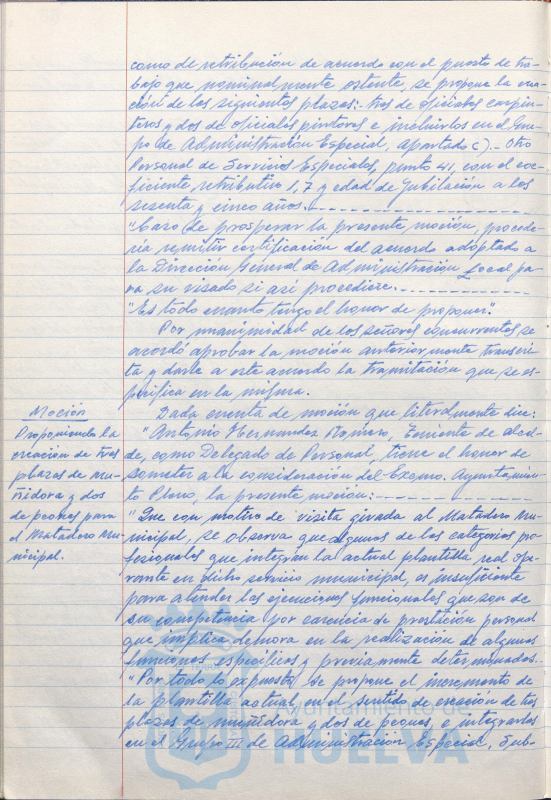 como de retribución de acuerdo con el puesto de tra-
bajo que nominalmente ostente, se propone la crea-
ción de las siguientes plazas:- tres de oficiales carpin-
teros y dos de oficiales pintores e incluirlos en el Gru-
po de Administración Especial, apartado c).- Otro
Personal de Servicios Especiales, punto 41, con el coe-
ficiente, retributivo 1,7 y edad de jubilación a los
sesenta y cinco años.
"Caso de prosperar la presente moción, procede-
ría remitir certificación del acuerdo adoptado a
la Dirección General de Administración Local pa-
ra su visado si así procediere.
"Es todo cuanto tengo el honor de proponer".
Por unanimidad de los señores concurrentes se
acordó aprobar la moción anteriormente transcri-
ta y darle a este acuerdo la tramitación que se es-
pecifica en la misma.
Moción
Proponiendo la
creación de tres
plazas de mu-
ñidora y dos
de peones para
el Matadero Mu-
nicipal.
Dada cuenta de moción que literalmente dice:
"Antonio Hernandez Romero, Teniente de alcal-
de, como Delegado de Personal, tiene el honor de
someter a la consideración del Excmo. Ayuntamien-
to Pleno, la presente moción:
"Que con motivo de visita girada al Matadero Mu-
nicipal, se observa que algunos de las categorías pro-
fesionales que integran la actual plantilla real ope-
rante en dicho servicio municipal, es insuficiente
para atender las funcionales que son de
su competencia por carencia de prestación personal
que implica demora en la realización de algunas
funciones específicas y previamente determinadas.
"Por todo lo expuesto, se propone el incremento de
la plantilla actual en el sentido de creación de tres
plazas de muñidora y dos de peones, e integrarlos
en el Grupo III de Administración Especial, Sub-
Ayuntamiento de
HUELVA